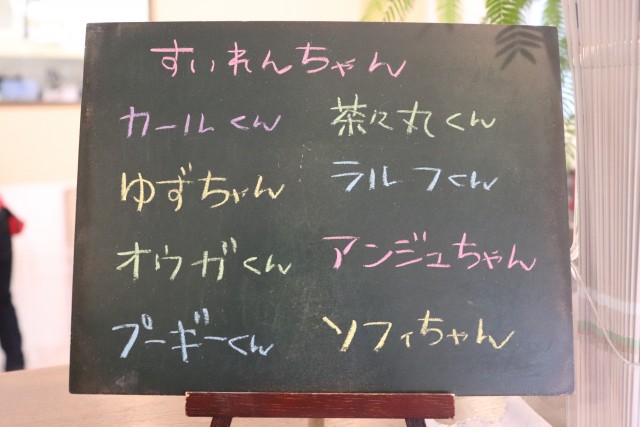 すいれんちゃん
カールくん
茶々丸くん
ゆずちゃん
ラルフくん
オウガくん
アンジュちゃん
プーギーくん
ソフィちゃん